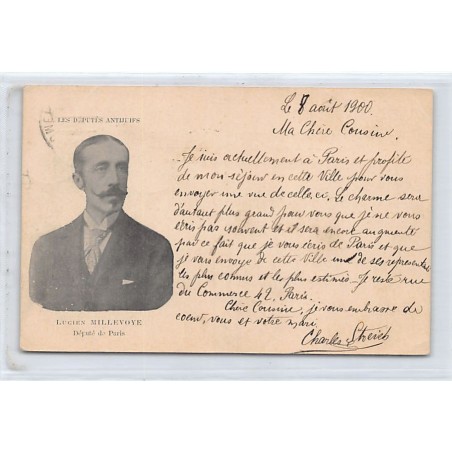 LES DÉPUTÉS ANTIJUIFS
Le 8 août 1900.
Ma Chère Cousine,
Je suis actuellement à Paris et profite
de mon séjour en cette Ville pour vous
envoyer une vue de celle-ci. Le charme sera
d'autant plus grand pour vous que je ne vous
écris pas souvent et il sera encore augmenté
par ce fait que je vous écris de Paris et que
je vous envoye de cette Ville un de ses représentants
les plus connus et les plus estimés. Je reste rue
du Commerce 42, Paris.
Chère Cousine, je vous embrasse de
coeur, vous et votre mari.
Charles
LUCIEN MILLEVOYE
Député de Paris